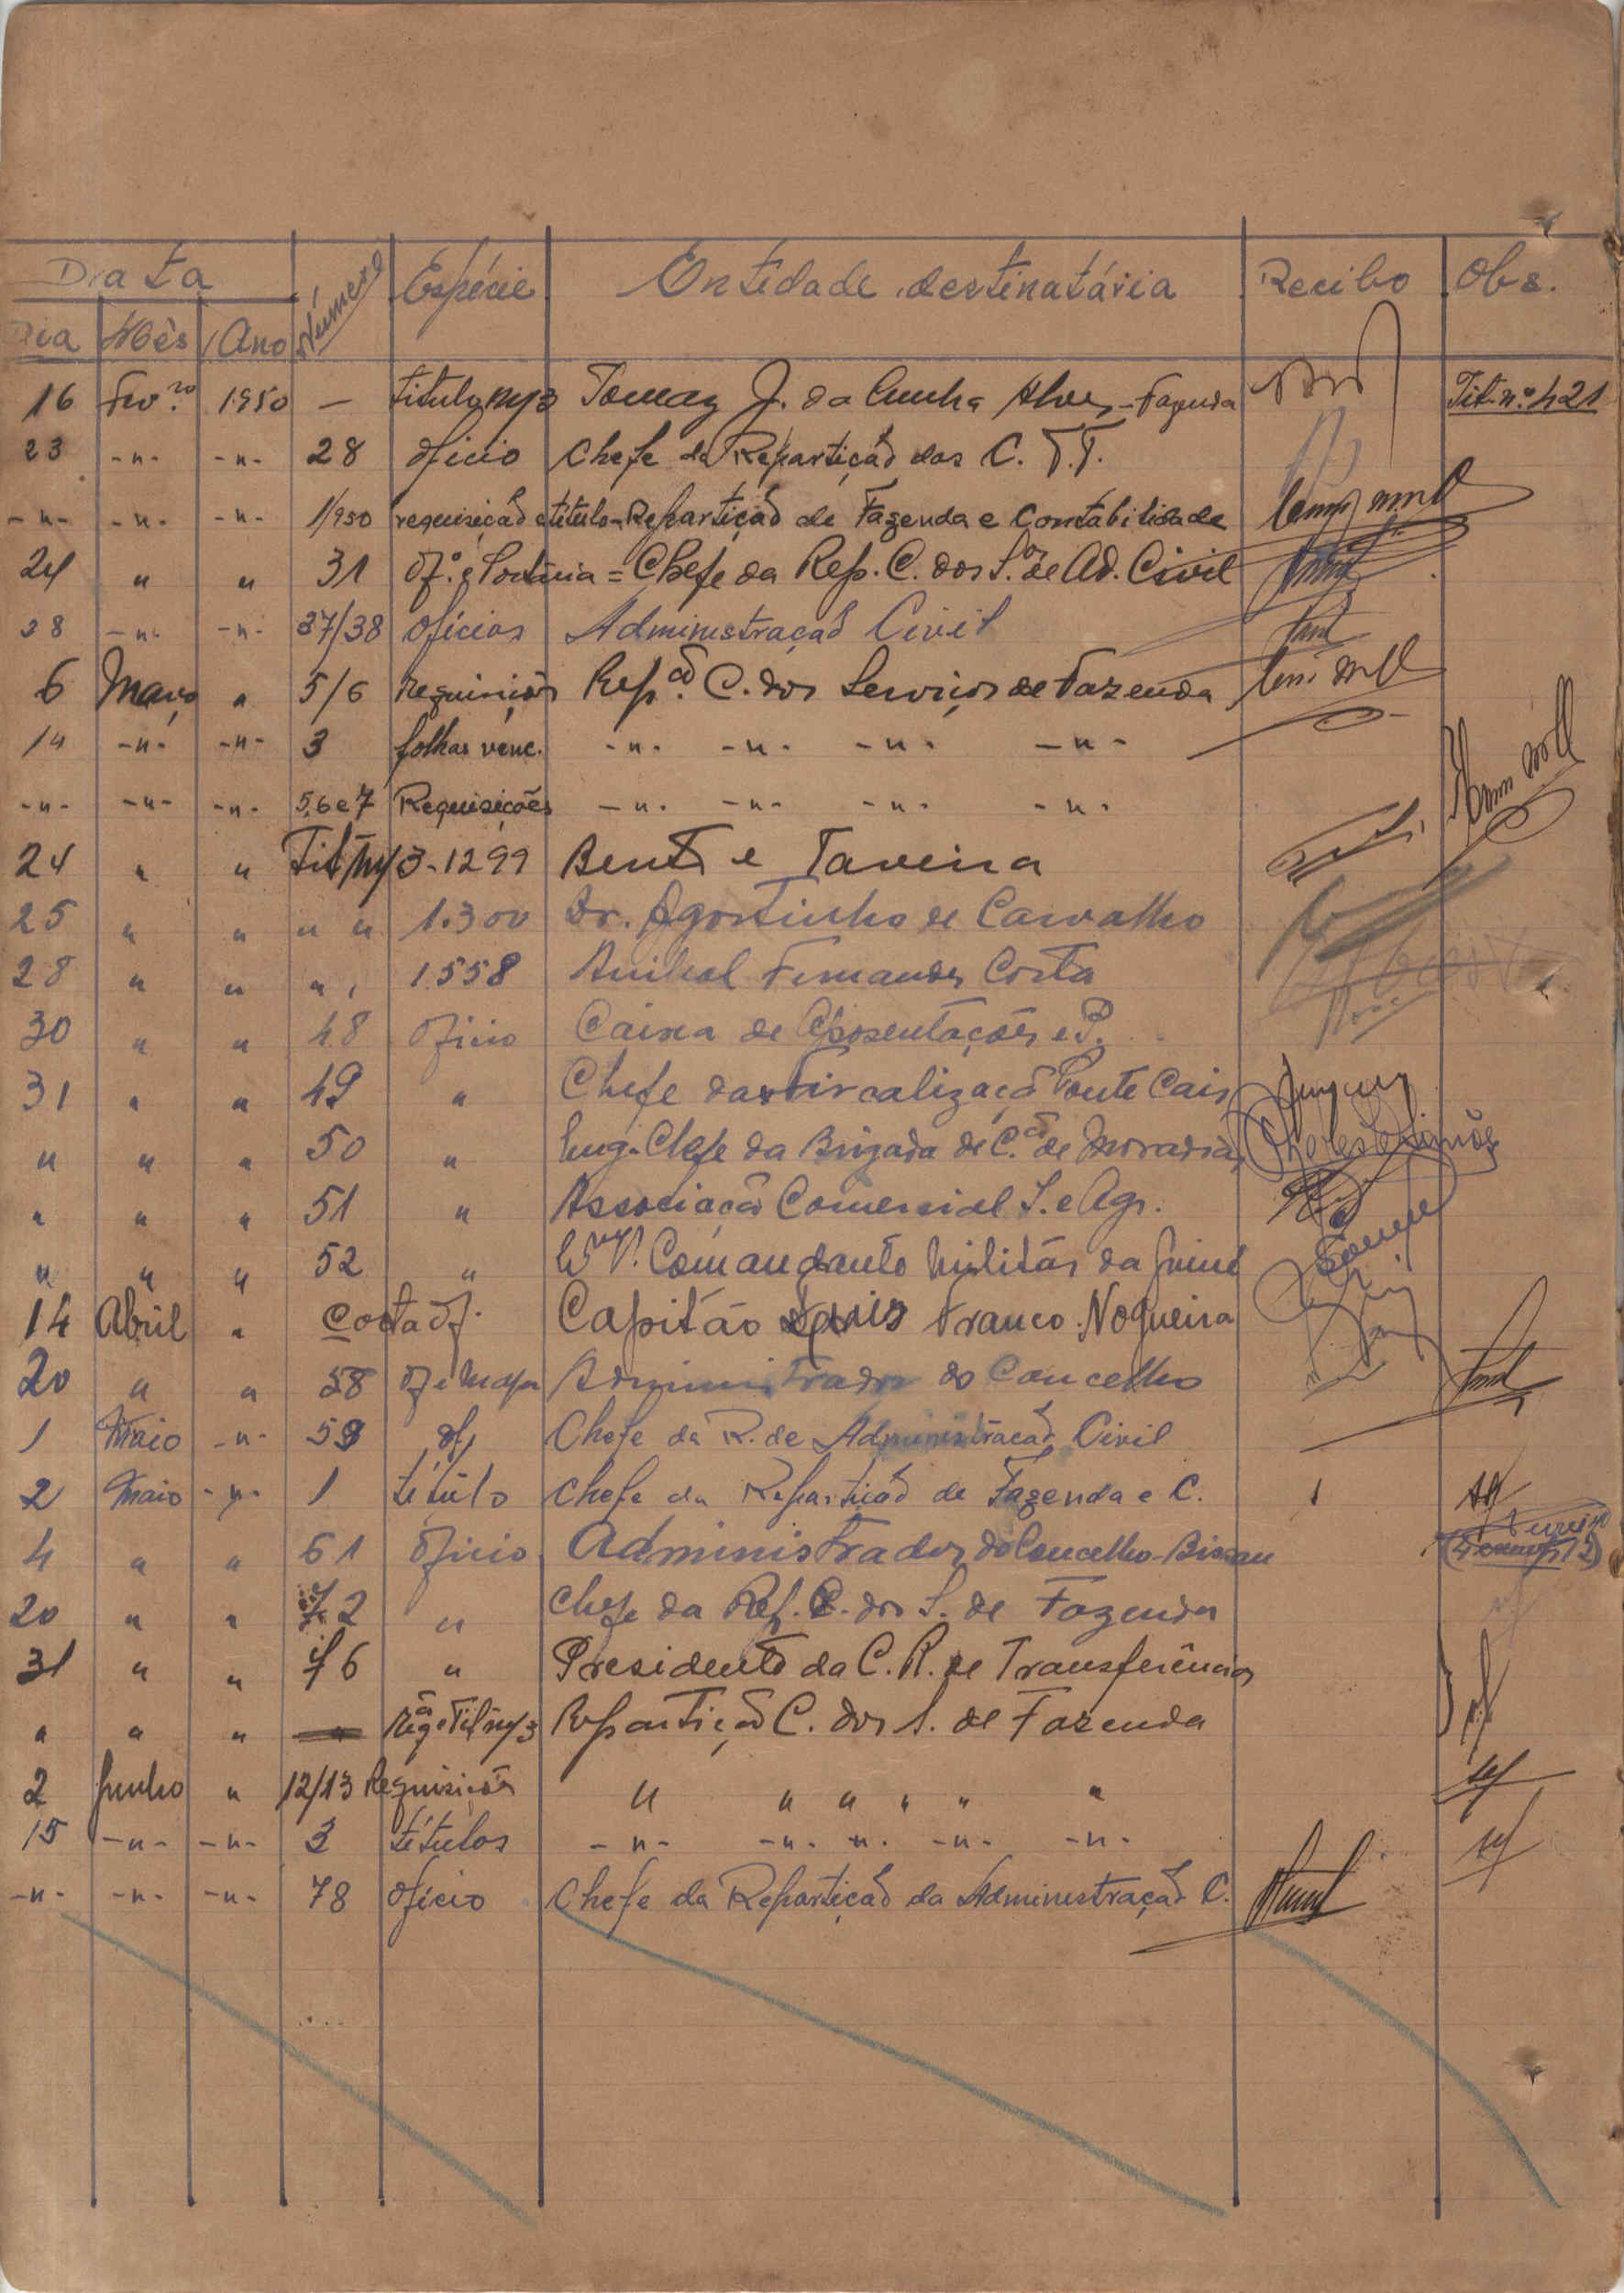 Data Número Espécie Entidade destinatária Recibo Obs.
Dia Mês Ano
16 Fev.ro 1950 — titulo m/3 Tomaz J. da Cunha Alves - Fazenda Tit. n.º 421
23 -"- -"- 28 oficio Chefe da Repartição dos C.T.T.
-"- -"- -"- 1/950 requisição e título - Repartição de Fazenda e Contabilidade
24 " " 31 Of.º e Portaria = Chefe da Rep. C. dos S.os de Ad. Civil
28 -"- -"- 37/38 Oficios Administração Civil
6 Março " 5/6 Requisições Rep.ção C. dos Serviços de Fazenda
14 -"- -"- 3 folhas venc. -"- -"- -"- -"-
-"- -"- -"- 5,6 e 7 Requisições -"- -"- -"- -"-
24 " " Tit m/3 - 1299 Bento e Taveira
25 " " " " 1.300 Dr. Agostinho de Carvalho
28 " " " 1558 Anibal Fernandes Costa
30 " " 48 Oficio Caixa de Aposentações e P.
31 " " 49 " Chefe da Fiscalização Ponte Cais
" " " 50 " Eng. Chefe da Brigada de C.ção de Moradias
" " " 51 " Associação Comercial I. e Agr.
" " " 52 " Comandante Militar da Guiné
14 Abril " Costa Of. Capitão Luis Franco Nogueira
20 " " 58 Of e Mapa Administrador do Concelho
1 Maio -"- 59 of, Chefe da R. de Administração Civil
2 Maio -"- 1 título Chefe da Repartição de Fazenda e C.
4 " " 61 Oficio Administrador do Concelho - Bissau
20 " " 72 " Chefe da Rep. C. dos S. de Fazenda
31 " " 76 " Presidente da C. R. de Transferências
" " " Rq e Tit m/3 Repartição C. dos S. de Fazenda
2 Junho " 12/13 Requisições " " " " " "
15 -"- -"- 3 títulos -"- -"- -"- -"- -"-
-"- -"- -"- 78 Oficio Chefe da Repartição da Administração C.